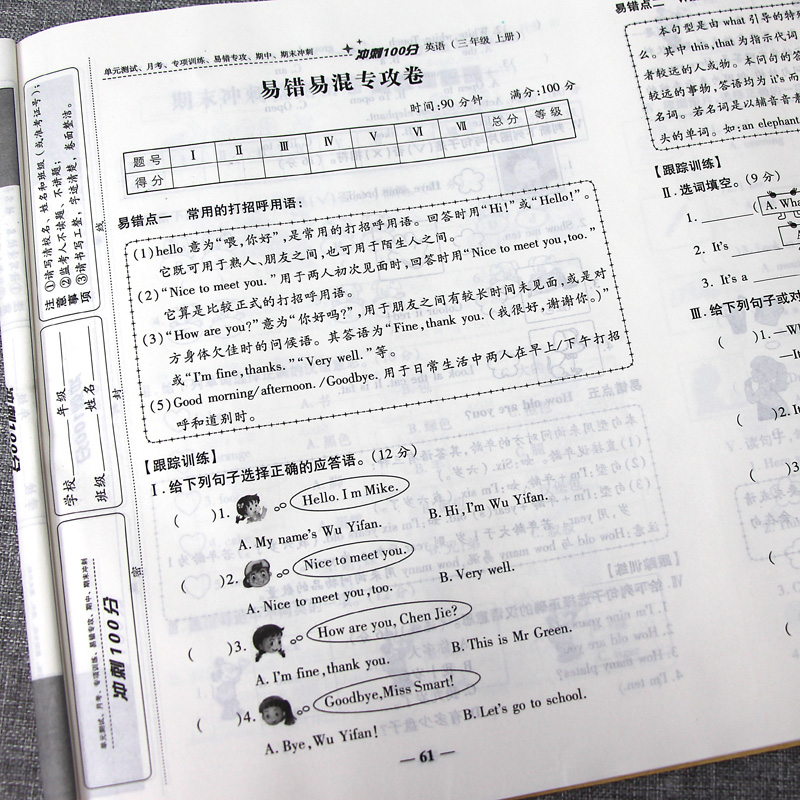 单元测试、月考、专项训练、易错专攻、期中、期末冲刺
冲刺100分 英语(三年级 上册)
易错易混专攻卷
时间:90分钟 满分:100分
题号 Ⅰ Ⅱ Ⅲ Ⅳ Ⅴ Ⅵ Ⅶ 总分 等级
得分
易错点一 常用的打招呼用语:
(1)hello 意为“喂,你好”,是常用的打招呼用语。回答时用“Hi!”或“Hello!”。
它既可用于熟人、朋友之间,也可用于陌生人之间。
(2)“Nice to meet you.”用于两人初次见面时,回答时用“Nice to meet you,too.”
它算是比较正式的打招呼用语。
(3)“How are you?”意为“你好吗?”,用于朋友之间有较长时间未见面,或是对
方身体欠佳时的问候语。其答语为“Fine,thank you.(我很好,谢谢你。)”
或“I'm fine,thanks.”“Very well.”等。
(5)Good morning/afternoon./Goodbye.用于日常生活中两人在早上/下午打招
呼和道别时。
【跟踪训练】
Ⅰ.给下列句子选择正确的应答语。(12分)
( )1. Hello. I'm Mike.
A. My name's Wu Yifan. B. Hi,I'm Wu Yifan.
( )2. Nice to meet you.
A. Nice to meet you,too. B. Very well.
( )3. How are you, Chen Jie?
A. I'm fine,thank you. B. This is Mr Green.
( )4. Goodbye,Miss Smart!
A. Bye,Wu Yifan! B. Let's go to school.
— 61 —
注意事项
①请写清校名、姓名和班级(或准考证号);
②监考人不读题,不讲题;
③请书写工整、字迹清楚,卷面整洁。
学校 年级
班级 姓名
线
封
密
单元测试、月考、专项训练、易错专攻、期中、期末冲刺
冲刺100分
易错点二
本句型是由 what 引导的特
么。其中 this,that 为指示代词
者较远的人或物。本问句的答
较远的事物,答语均为 it's 而
名词。若名词是以辅音音素
头的单词。如:an elephant
【跟踪训练】
Ⅱ.选词填空。(9分)
1. A. Wha
2. It's
3. It's a
Ⅲ.给下列句子或对
( )1.—Wh
—It
( )2. It
( )3